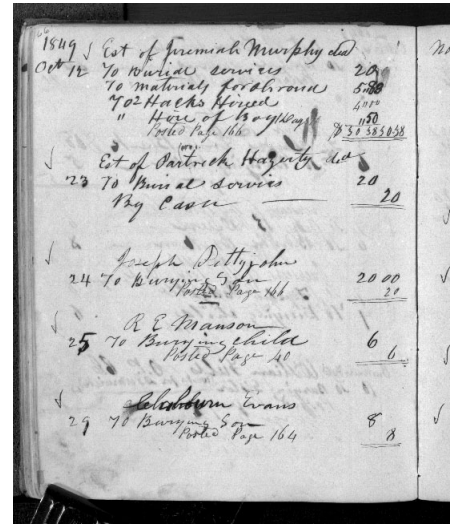 66
1849 Est of Jeremiah Murphy decd
Oct 12 To Burial services 20
To materials for Shroud
To 2 Hacks Hired 4 00
" Hire of Bay 1 Day " 50
Posted Page 166
Est of Partreck Hagerty decd
23 To Burial services 20
By Cash 20
Joseph Pettyjohn
24 To Burying Son 20 00
Posted Page 166 20
R E Manson
25 To Burying child 6
Posted Page 40 6
Evans
29 To Burying Son 8
Posted Page 164 8